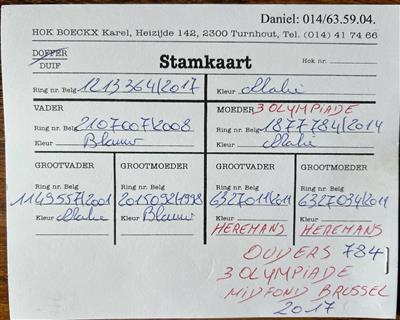 Daniel: 014/63.59.04.
HOK BOECKX Karel, Heizijde 142, 2300 Turnhout, Tel. (014) 41 74 66
DOFFER
DUIF
Stamkaart
Hok nr.
Ring nr. Belg 1213364/2017
Kleur Malie
VADER
MOEDER 3 OLYMPIADE
Ring nr. Belg 2107007/2008
Ring nr. Belg 1877784/2014
Kleur Blauw
Kleur Malie
GROOTVADER GROOTMOEDER GROOTVADER GROOTMOEDER
Ring nr. Belg Ring nr. Belg Ring nr. Belg Ring nr. Belg
1149557/2001 2015092/1998 6327011/2011 6327034/2011
Kleur Malie Kleur Blauw Kleur Kleur
HEREMANS HEREMANS
OUDERS 784
3 OLYMPIADE
MIDFOND BRUSSEL
2017